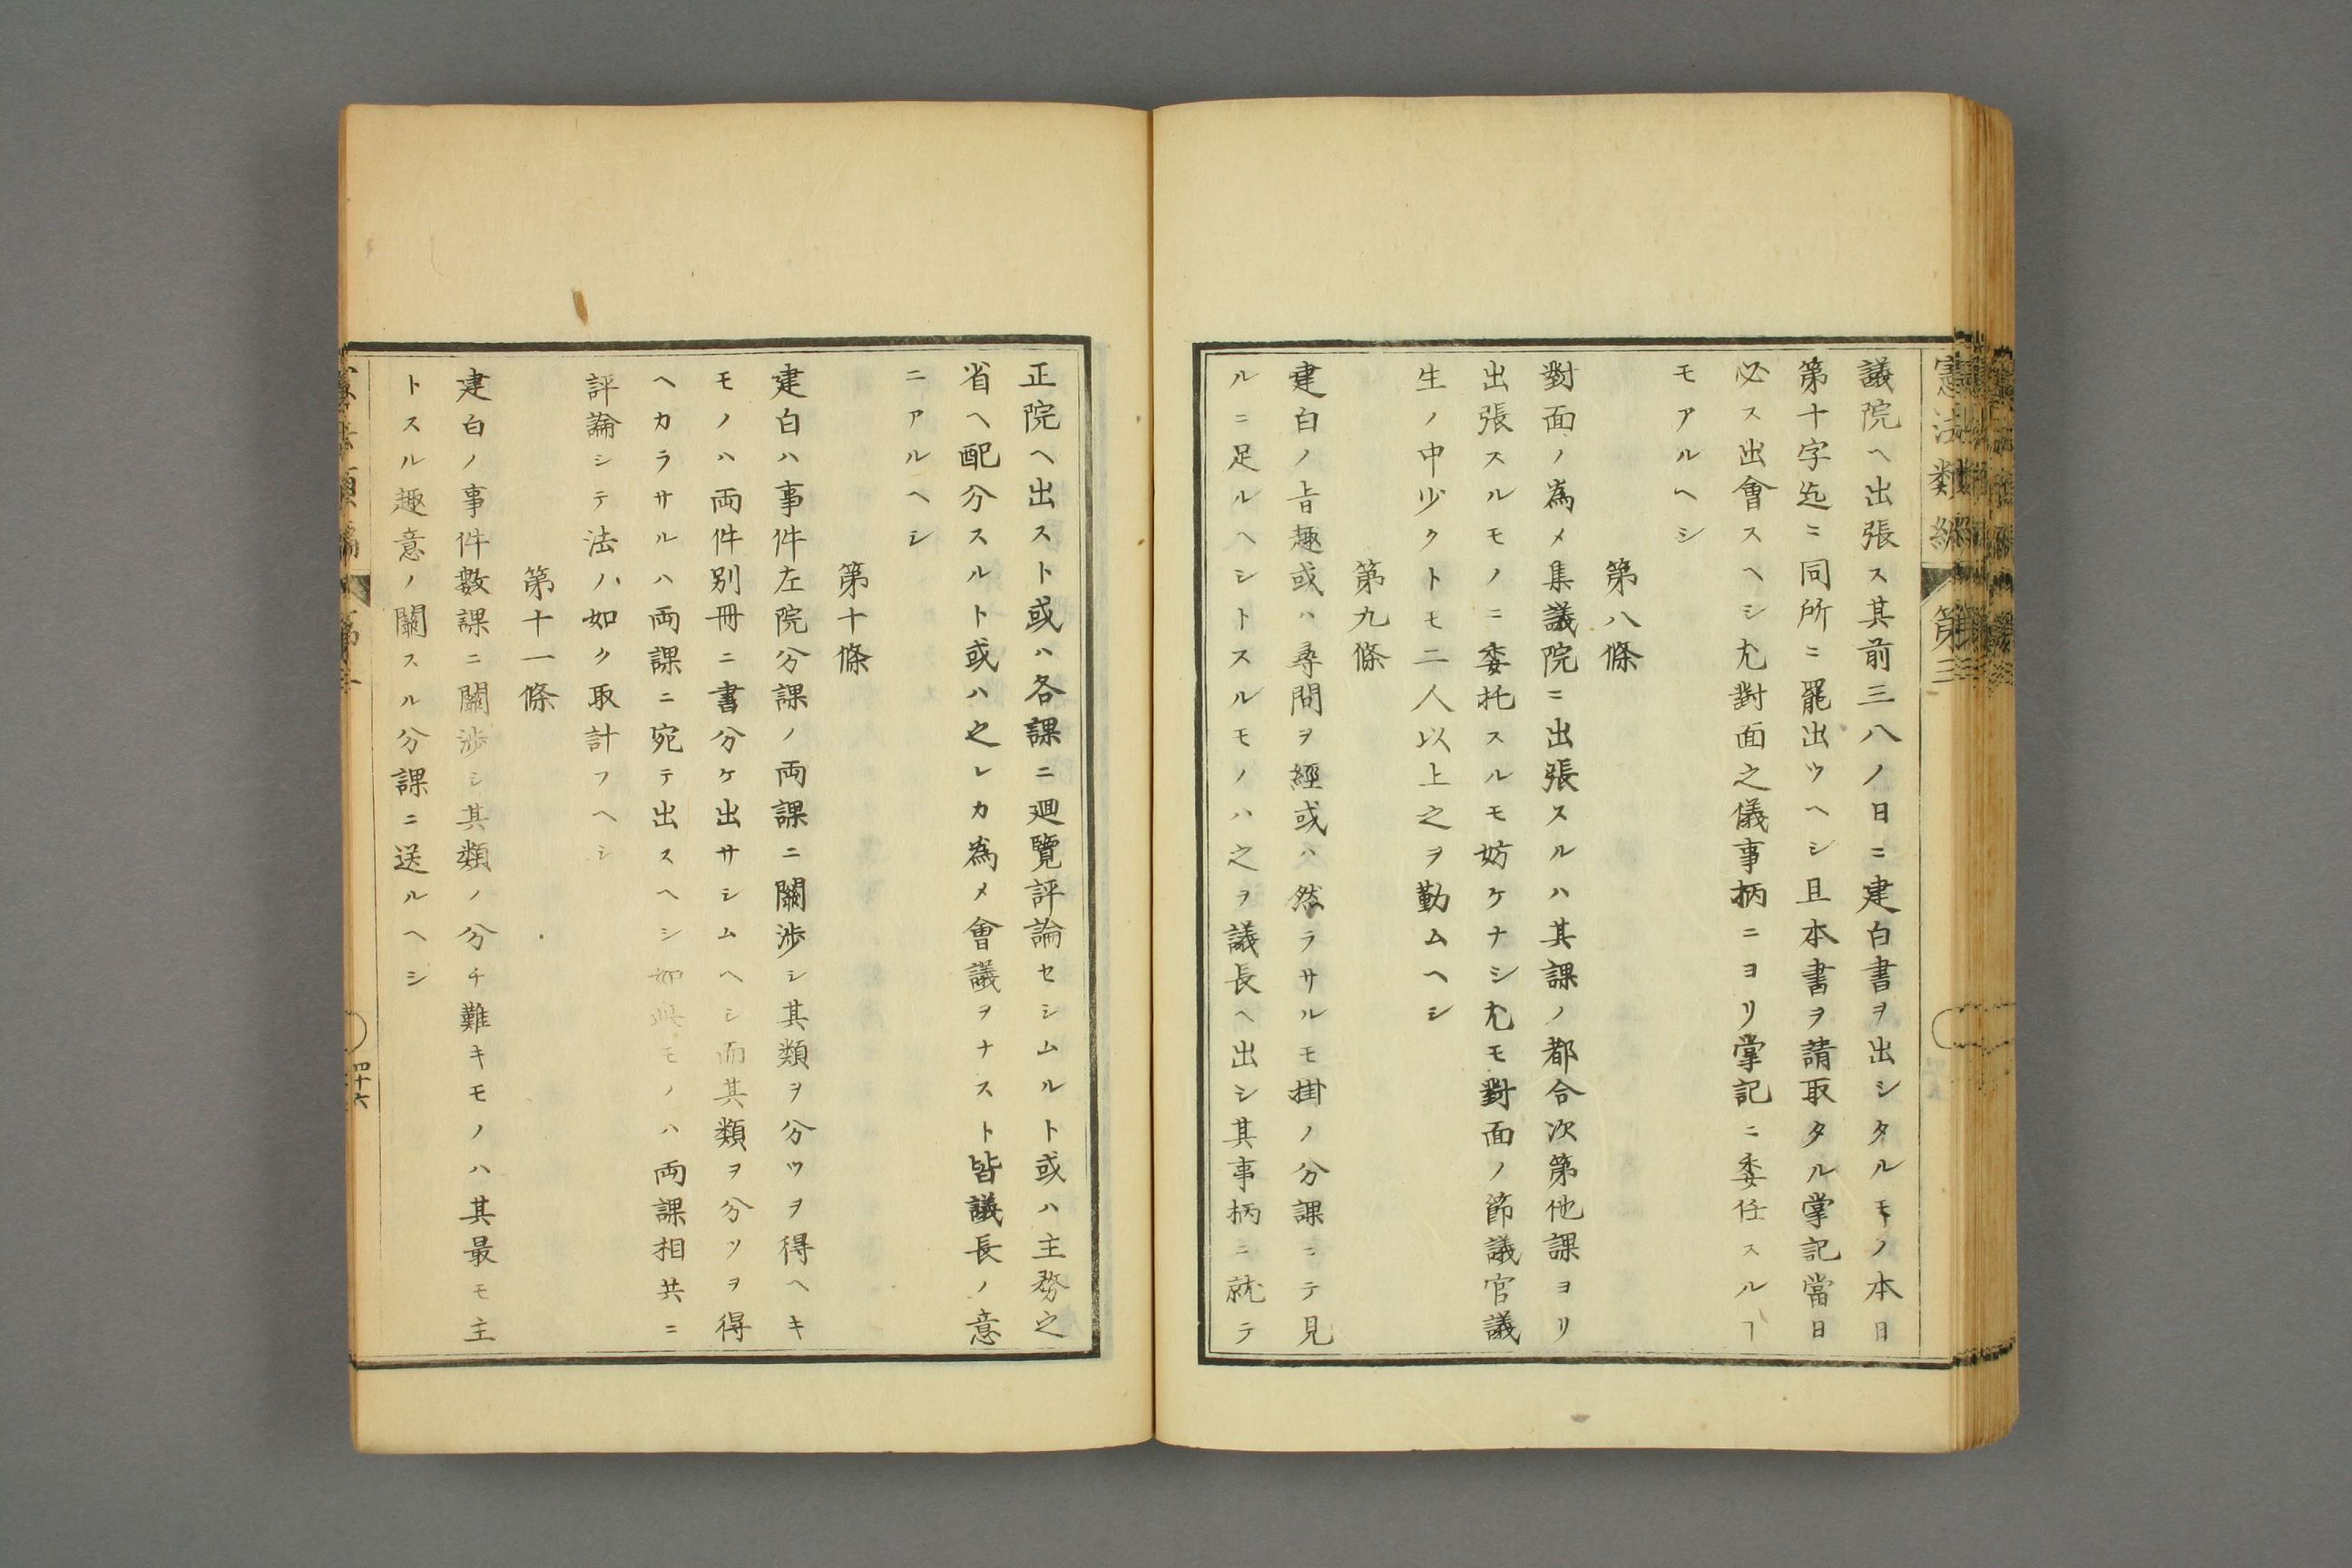 憲法類編 第三
議院ヘ出張ス其前三八ノ日ニ建白書ヲ出シタルモノ本日
第十字迄ニ同所ニ罷出ツヘシ且本書ヲ請取タル掌記當日
必ス出會スヘシ尤對面之儀事柄ニヨリ掌記ニ委任スルヿ
モアルヘシ
第八條
對面ノ為メ集議院ニ出張スルハ其課ノ都合次第他課ヨリ
出張スルモノニ委托スルモ妨ケナシ尤モ對面ノ節議官議
生ノ中少クトモ二人以上之ヲ勤ムヘシ
第九條
建白ノ旨趣或ハ尋問ヲ經或ハ然ラサルモ掛ノ分課ニテ見
ルニ足ルヘシトスルモノハ之ヲ議長ヘ出シ其事柄ニ就テ
正院ヘ出スト或ハ各課ニ廻覽評論セシムルト或ハ主務之
省ヘ配分スルト或ハ之レカ為メ會議ヲナスト皆議長ノ意
ニアルヘシ
第十條
建白ハ事件左院分課ノ両課ニ關渉シ其類ヲ分ツヲ得ヘキ
モノハ両件別冊ニ書分ケ出サシムヘシ而其類ヲ分ツヲ得
ヘカラサルハ両課ニ宛テ出スヘシ如此モノハ両課相共ニ
評論シテ法ノ如ク取計フヘシ
第十一條
建白ノ事件數課ニ關渉シ其類ノ分チ難キモノハ其最モ主
トスル趣意ノ關スル分課ニ送ルヘシ
四十六